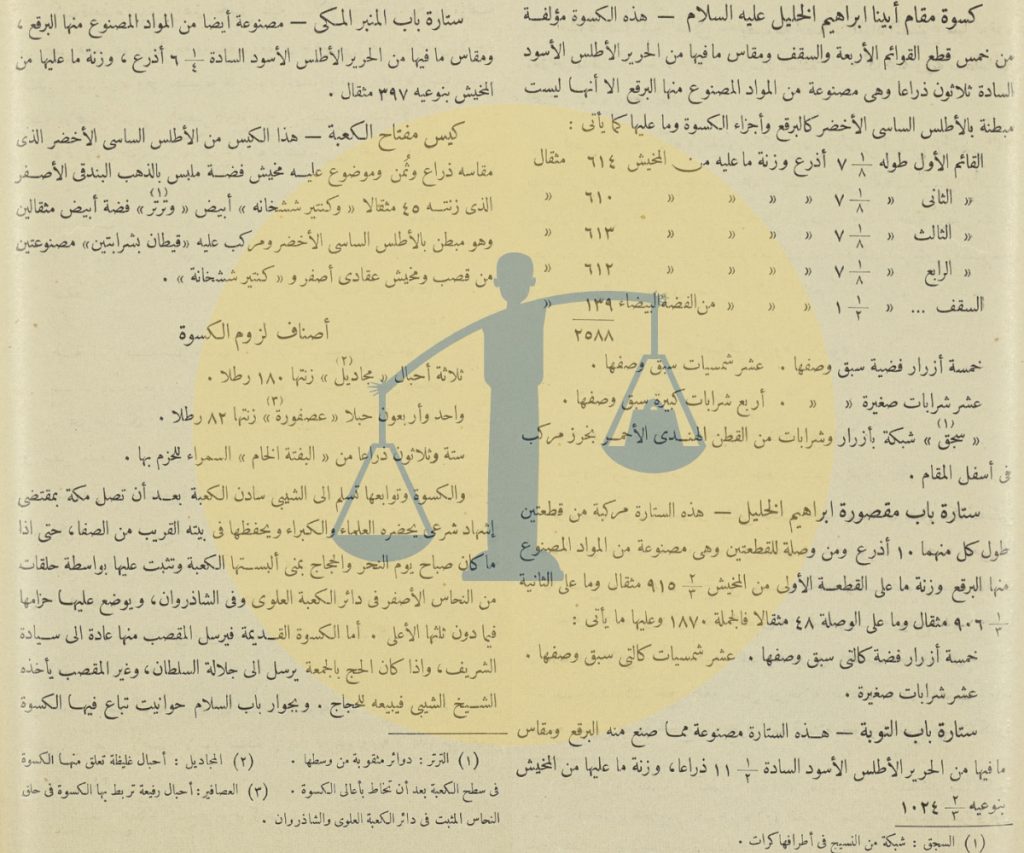 كسوة مقام أبينا ابراهيم الخليل عليه السلام — هذه الكسوة مؤلفة
من خمس قطع القوائم الأربعة والسقف ومقاس ما فيها من الحرير الأطلس الأسود
السادة ثلاثون ذراعا وهى مصنوعة من المواد المصنوع منها البرقع الا أنها ليست
مبطنة بالأطلس الساسى الأخضر كالبرقع وأجزاء الكسوة وما عليها كما يأتى :
القائم الأول طوله ١/٨ ٧ أذرع وزنة ما عليه من المخيش ٦١٤ مثقال
« الثانى « ١/٨ ٧ « « « « ٦١٠ «
« الثالث « ١/٨ ٧ « « « « ٦١٣ «
« الرابع « ١/٨ ٧ « « « « ٦١٢ «
السقف ... « ١/٢ ١ « « « من الفضة البيضاء ١٣٩ «
٢٥٨٨
خمسة أزرار فضية سبق وصفها . عشر شمسيات سبق وصفها .
عشر شرابات صغيرة « « . أربع شرابات كبيرة سبق وصفها .
« سجق (١) » شبكة بأزرار وشرابات من القطن الهندى الأحمر بخرز مركب
فى أسفل المقام .
ستارة باب مقصورة ابراهيم الخليل — هذه الستارة مركبة من قطعتين
طول كل منهما ١٠ أذرع ومن وصلة للقطعتين وهى مصنوعة من المواد المصنوع
منها البرقع وزنة ما على القطعة الأولى من المخيش ٢/٣ ٩١٥ مثقال وما على الثانية
١/٣ ٩٠٦ مثقال وما على الوصلة ٤٨ مثقالا فالجملة ١٨٧٠ وعليها ما يأتى :
خمسة أزرار فضة كالتى سبق وصفها . عشر شمسيات كالتى سبق وصفها .
عشر شرابات صغيرة .
ستارة باب التوبة — هذه الستارة مصنوعة مما صنع منه البرقع ومقاس
ما فيها من الحرير الأطلس الأسود السادة ١/٢ ١١ ذراعا، وزنة ما عليها من المخيش
بنوعيه ٢/٣ ١٠٢٤
(١) السجق : شبكة من النسيج فى أطرافها كرات .
ستارة باب المنبر المكى — مصنوعة أيضا من المواد المصنوع منها البرقع ،
ومقاس ما فيها من الحرير الأطلس الأسود السادة ١/٤ ٦ أذرع ، وزنة ما عليها من
المخيش بنوعيه ٣٩٧ مثقال .
كيس مفتاح الكعبة — هذا الكيس من الأطلس الساسى الأخضر الذى
مقاسه ذراع وثُمن وموضوع عليه مخيش فضة ملبس بالذهب البندقى الأصفر
الذى زنته ٤٥ مثقالا « وكنتير ششخانه » أبيض « وترتر (١) » فضة أبيض مثقالين
وهو مبطن بالأطلس الساسى الأخضر ومركب عليه «قيطان بشرابتين» مصنوعتين
من قصب ومخيش عقادى أصفر و « كنتير ششخانة » .
أصناف لزوم الكسوة
ثلاثة أحبال « مجاديل (٢) » زنتها ١٨٠ رطلا .
واحد وأربعون حبلا « عصفورة (٣) » زنتها ٨٢ رطلا .
ستة وثلاثون ذراعا من « البفتة الخام » السمراء للحزم بها .
والكسوة وتوابعها تسلم الى الشيبى سادن الكعبة بعد أن تصل مكة بمقتضى
إشهاد شرعى يحضره العلماء والكبراء ويحفظها فى بيته القريب من الصفا، حتى اذا
ما كان صباح يوم النحر والحجاج بمنى ألبستها الكعبة وتثبت عليها بواسطة حلقات
من النحاس الأصفر فى دائر الكعبة العلوى وفى الشاذروان، ويوضع عليها حزامها
فيما دون ثلثها الأعلى . أما الكسوة القديمة فيرسل المقصب منها عادة الى سيادة
الشريف، واذا كان الحج بالجمعة يرسل الى جلالة السلطان، وغير المقصب يأخذه
الشيخ الشيبى فيبيعه للحجاج . وبجوار باب السلام حوانيت تباع فيها الكسوة
(١) الترتر : دوائر مثقوبة من وسطها . (٢) المجاديل : أحبال غليظة تعلق منها الكسوة
فى سطح الكعبة بعد أن تخاط بأعالى الكسوة . (٣) العصافير: أحبال رفيعة تربط بها الكسوة فى حلق
النحاس المثبت فى دائر الكعبة العلوى والشاذروان .